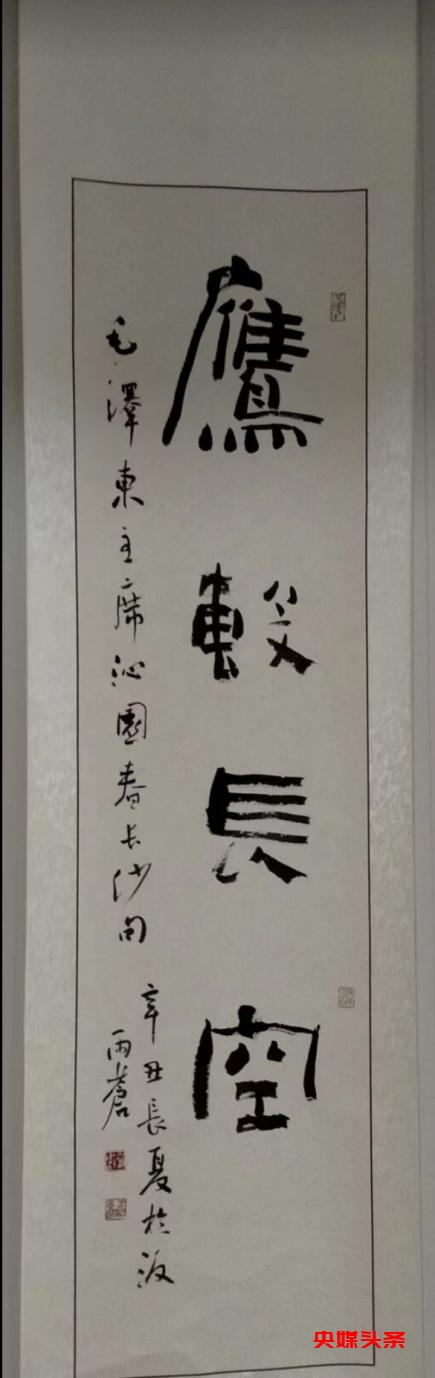 鷹毄長空
毛澤東主席沁園春长沙句
辛丑長夏於汳
雨蒼
央媒头条